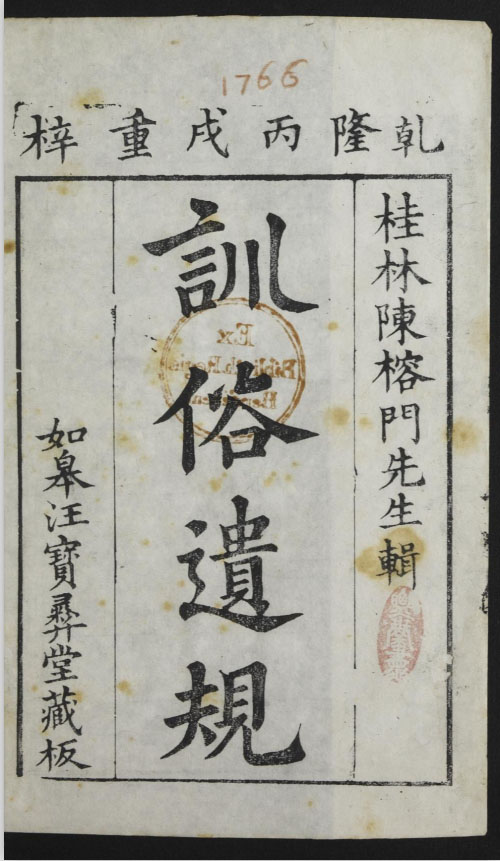 1766
乾隆丙戌重梓
桂林陳榕門先生輯
訓俗遺規
如皋汪寶彞堂藏板
Ex